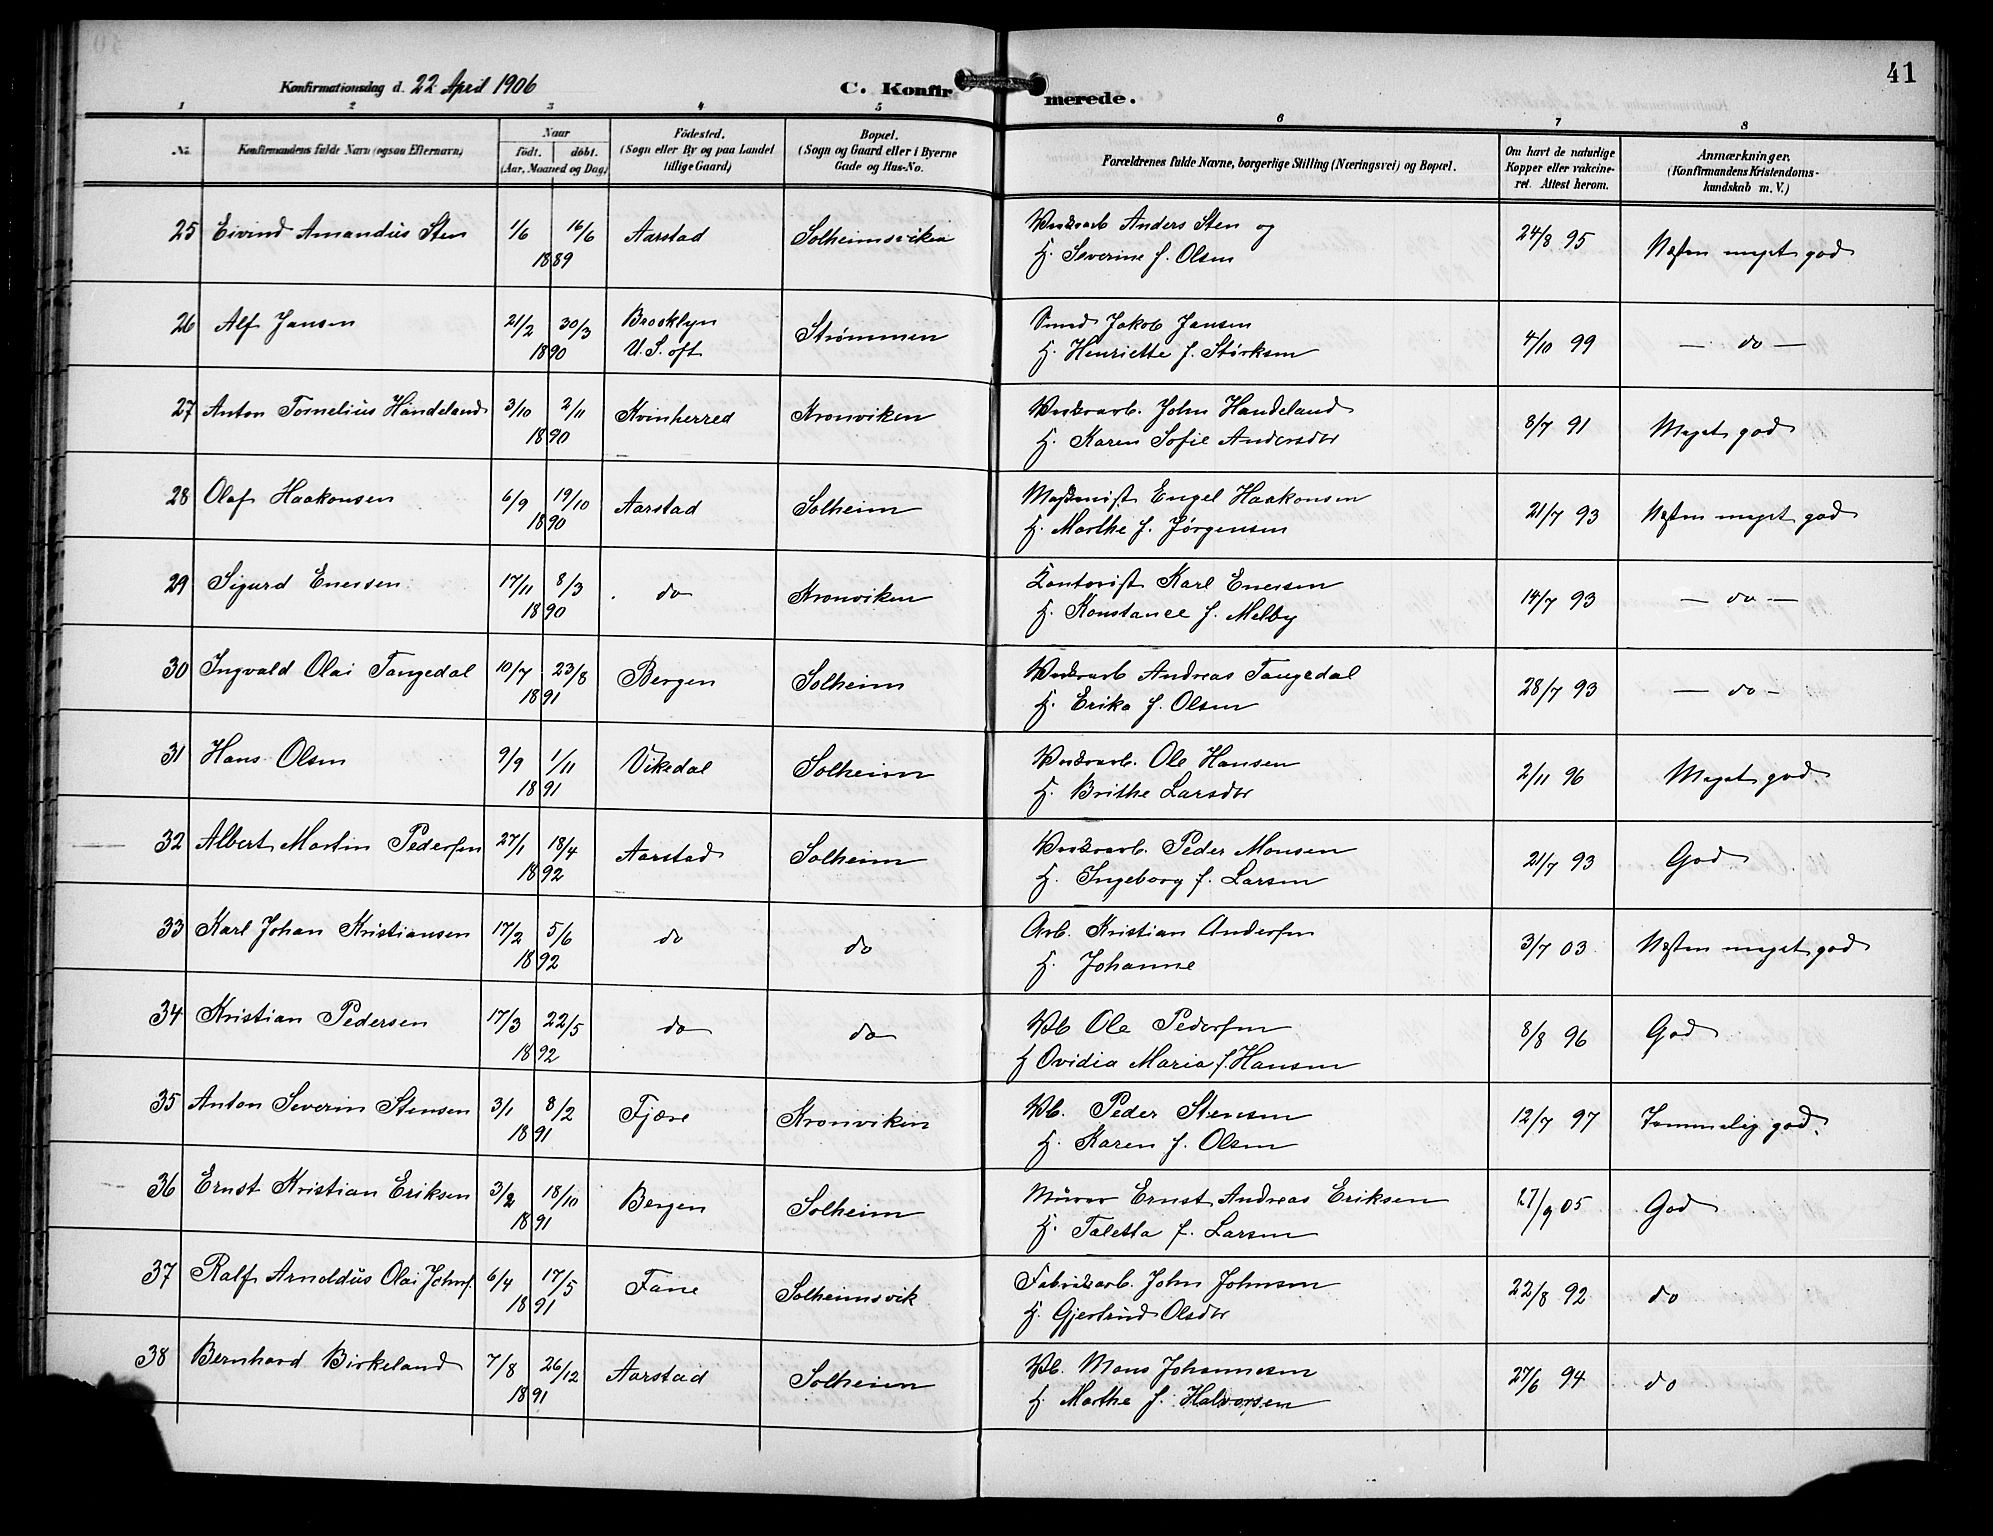 41
Konfirmationsdag d. 22 April 1906 C. Konfirmerede.
1 2 3 4 5 6 7 8
No. Konfirmandens fulde Navn (ogsaa Efternavn) Naar födt. döbt. (Aar, Maaned og Dag) Födested. (Sogn eller By og paa Landet tillige Gaard) Bopæl. (Sogn og Gaard eller i Byerne Gade og Hus-No. Forældrenes fulde Navne, borgerlige Stilling (Næringsvei) og Bopæl. Om havt de naturlige Kopper eller vakcineret. Attest herom. Anmærkninger. (Konfirmandens Kristendomskundskab m. V.)
25 Eivind Amandus Sten 1/6 16/6 Aarstad Solheimsviken Verksarb Anders Sten og 24/8 95 Næsten meget god
1889 H. Severine f. Olsen
26 Alf Jansen 21/2 30/3 Brooklyn Strømmen Jakob Jansen 4/10 99 — do —
1890 U. S. oft H. Henriette f. Størksen
27 Anton Tornelius Handeland 3/10 2/11 Kvinherred Kronviken Verksarb. John Handeland 8/7 91 Meget god
1890 H. Karen Sofie Andersdtr
28 Olaf Haakonsen 6/9 19/10 Aarstad Solheim Maskinist Engel Haakonsen 21/7 93 Næsten meget god
1890 H. Marthe f. Jørgensen
29 Sigurd Enersen 17/11 8/3 do Kronviken Kontorist Karl Enersen 14/7 93 — do —
1890 H. Konstance f. Melby
30 Ingvald Olai Tangedal 10/7 23/8 Bergen Solheim Verksarb Andreas Tangedal 28/7 93 — do —
1891 H. Erika f. Olsen
31 Hans Olsen 9/9 1/11 Vikedal Solheim Verksarb. Ole Hansen 2/11 96 Meget god
1891 H. Brithe Larsdtr
32 Albert Martin Pedersen 27/1 18/4 Aarstad Solheim Verksarb. Peder Monsen 21/7 93 God
1892 H. Ingeborg f. Larsen
33 Karl Johan Kristiansen 17/2 5/6 do do Arb. Kristian Andersen 3/7 03 Næsten meget god
1892 H. Johanne
34 Kristian Pedersen 17/3 22/5 do do Vb Ole Pedersen 8/8 96 God
1892 H Ovidia Maria f. Hansen
35 Anton Severin Stensen 3/1 8/2 Fjære Kronviken Vb. Peder Stensen 12/7 97 Temmelig god.
1891 H. Karen f. Olsen
36 Ernst Kristian Eriksen 3/2 18/10 Bergen Solheim Murer Ernst Andreas Eriksen 27/9 05 God
1891 H. Taletta f. Larsen
37 Ralf Arnoldus Olai Johns. 6/4 17/5 Fane Solheimsvik Fabriksarb. John Johnsen 22/8 92 do
1891 H. Gjertrud Olsdtr
38 Bernhard Birkeland 7/8 26/12 Aarstad Solheim Vb. Mons Johannesen 27/6 94 do
1891 H. Marthe f. Halvorsen